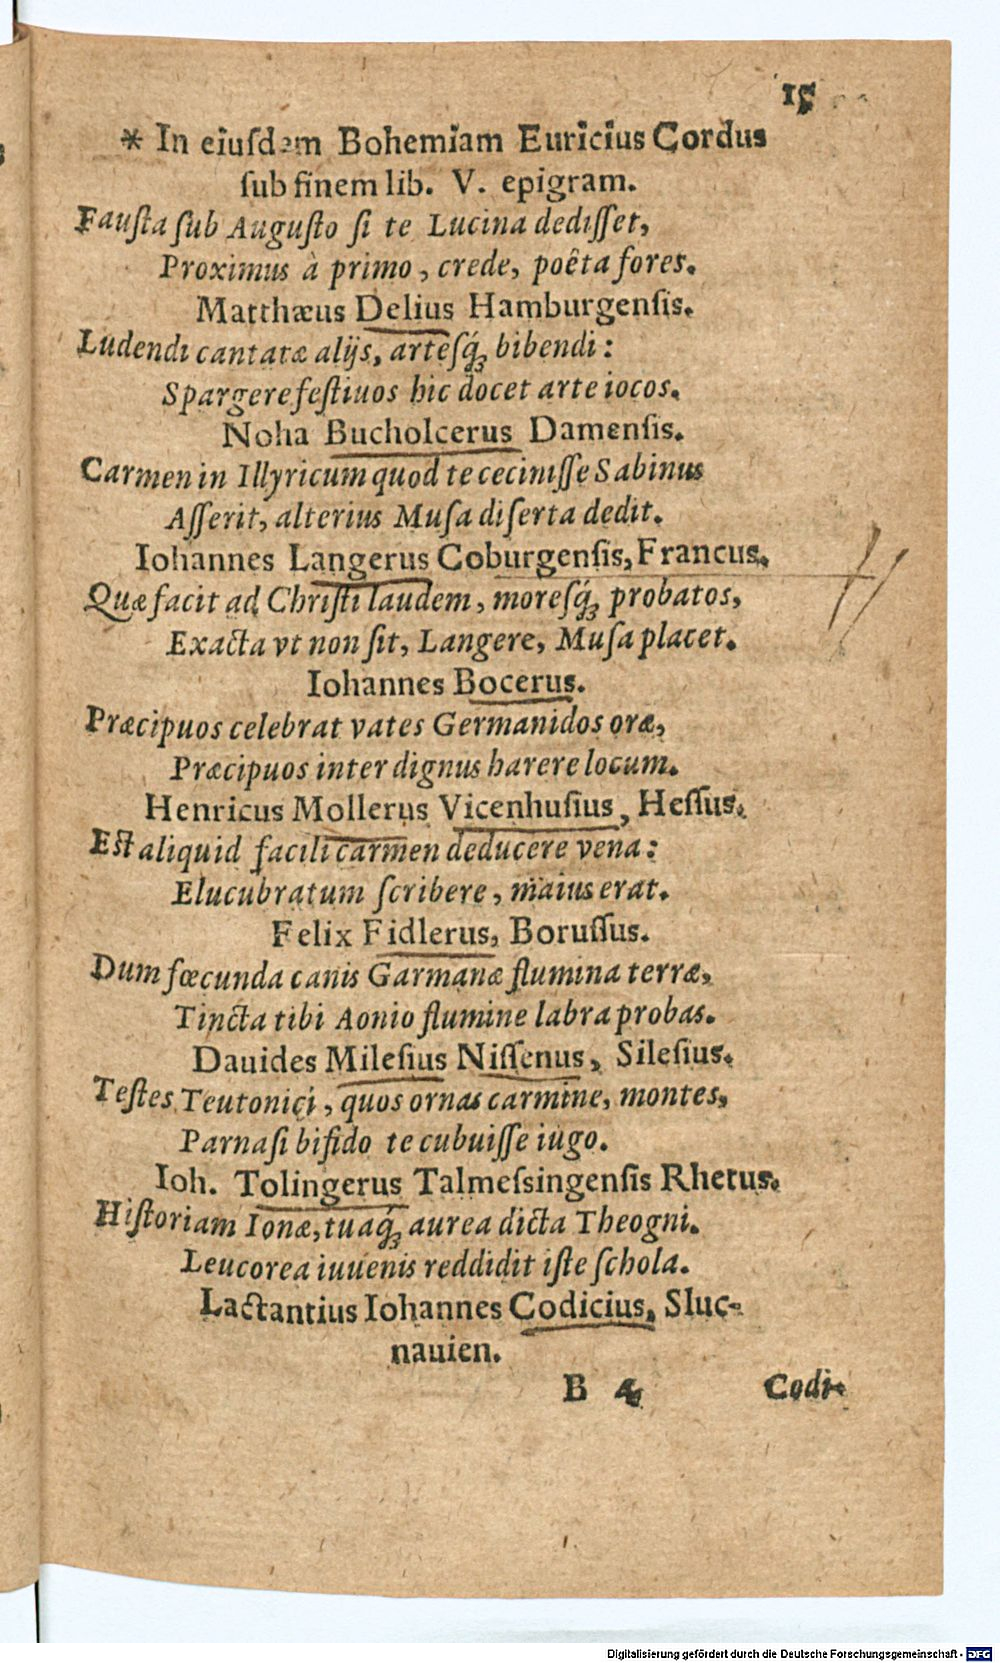 15
* In eiuſdem Bohemiam Euricius Cordus
ſub finem lib. V. epigram.
Fauſta ſub Auguſto ſi te Lucina dediſſet,
Proximus à primo, crede, poêta fores.
Matthæus Delius Hamburgenſis.
Ludendi cantatæ alijs, arteſq́ꝫ bibendi:
Spargere feſtiuos hic docet arte iocos.
Noha Bucholcerus Damenſis.
Carmen in Illyricum quod te ceciniſſe Sabinus
Aſſerit, alterius Muſa diſerta dedit.
Iohannes Langerus Coburgenſis, Francus.
Quæ facit ad Chriſti laudem, moreſq́ꝫ probatos,
Exacta vt non ſit, Langere, Muſa placet.
Iohannes Bocerus.
Præcipuos celebrat vates Germanidos oræ,
Præcipuos inter dignus harere locum.
Henricus Mollerus Vicenhuſius, Heſſus.
Eſt aliquid facili carmen deducere vena:
Elucubratum ſcribere, maius erat.
Felix Fidlerus, Boruſſus.
Dum fœcunda canis Garmanæ flumina terræ,
Tincta tibi Aonio flumine labra probas.
Dauides Mileſius Niſſenus, Sileſius.
Teſtes Teutonici, quos ornas carmine, montes,
Parnaſi bifido te cubuiſſe iugo.
Ioh. Tolingerus Talmeſsingenſis Rhetus.
Hiſtoriam Ionæ, tuaq́ꝫ aurea dicta Theogni.
Leucorea iuuenis reddidit iſte ſchola.
Lactantius Iohannes Codicius, Sluc-
nauien.
B 4 Codi-
Digitalisierung gefördert durch die Deutsche Forschungsgemeinschaft - DFG